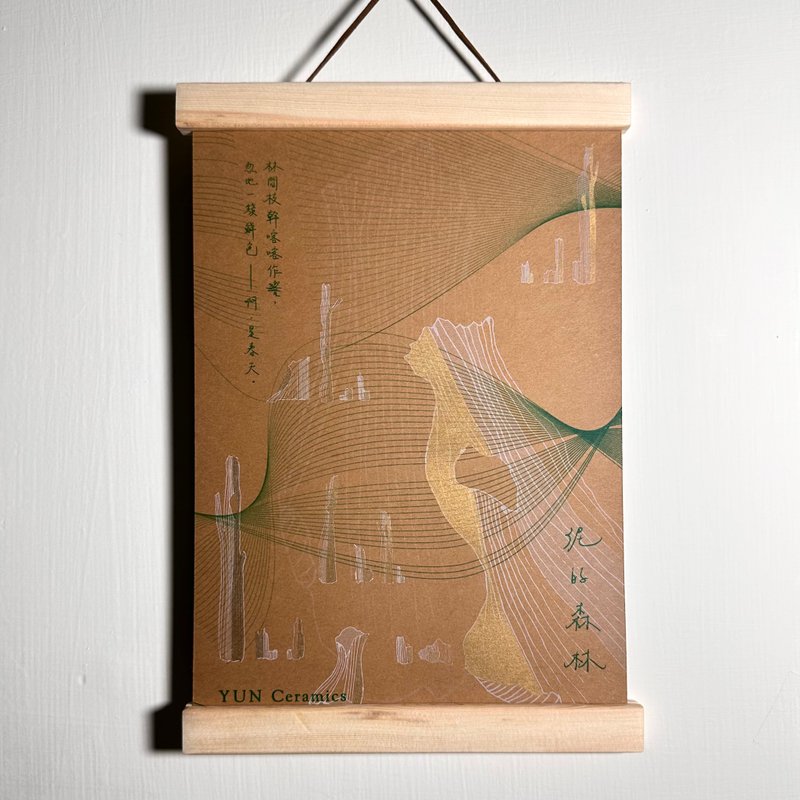 林間枝幹喀喀作響，
忽地一簇鮮色——啊，是春天。
泥的森林
YUN Ceramics